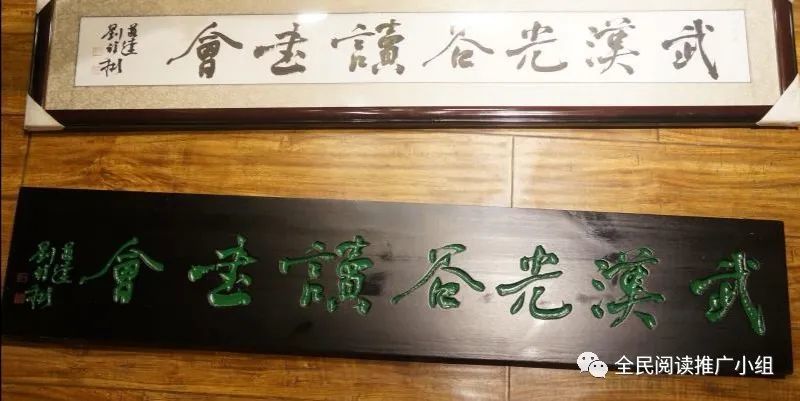 武漢光谷讀書會
劉
武漢光谷讀書會
劉
全民阅读推广小组